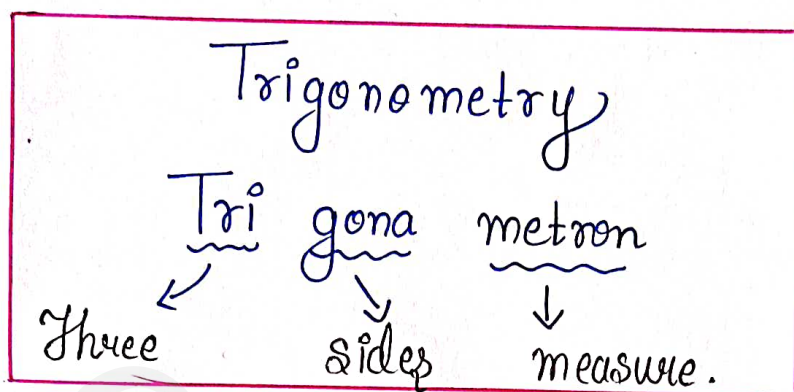 Trigonometry
Tri gona metron
Three sides measure.